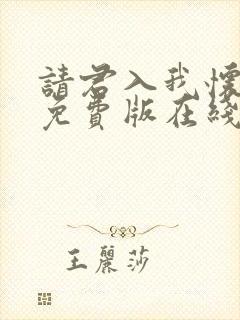 請君入我懷
免費版在綫
王麗莎